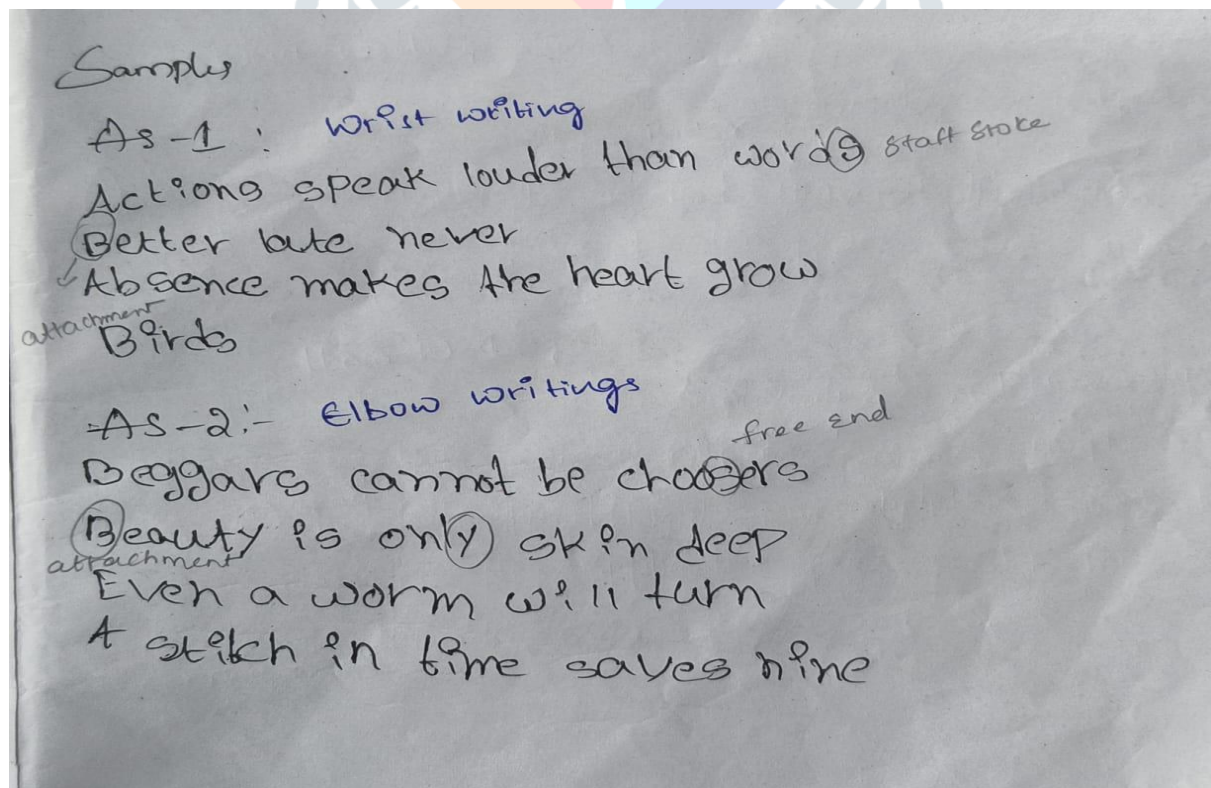 Samples
As-1 : Wrist writing
Actions speak louder than words staff stroke
Better late never
Absence makes the heart grow
attachment
Birds
As-2:- Elbow writings
free end
Beggars cannot be choosers
Beauty is only skin deep
attachment
Even a worm will turn
A stitch in time saves nine